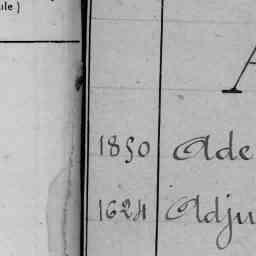 ule)
A
1850 Ade
1624 Adju